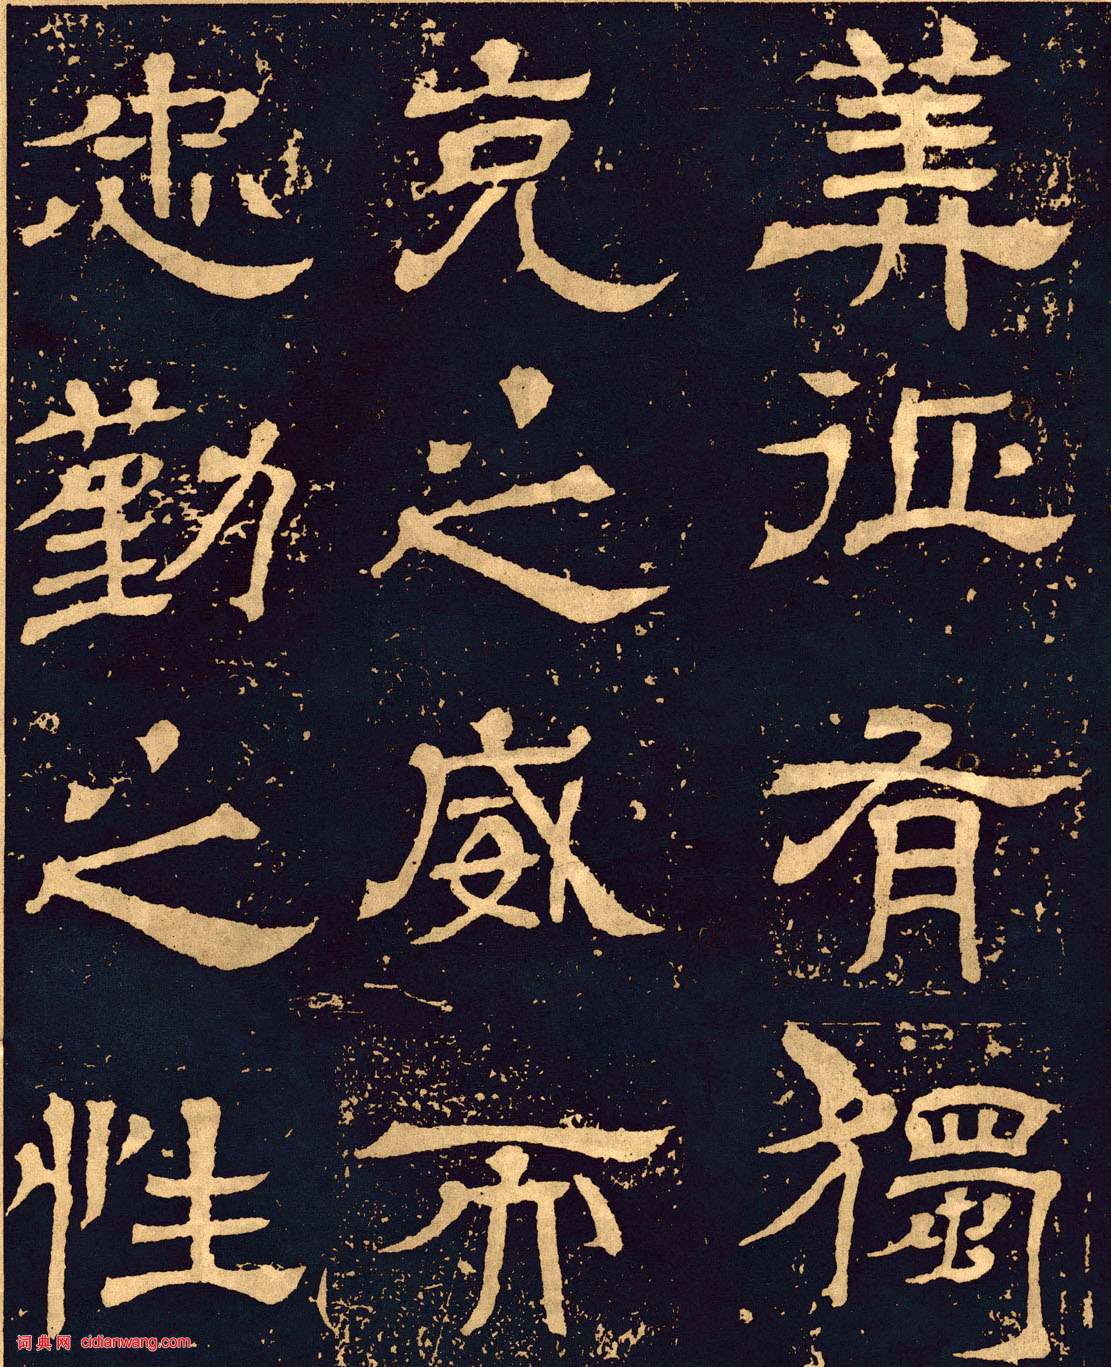 征有獨
克之威亦
忠勤之性
词典网 cidianwang.com